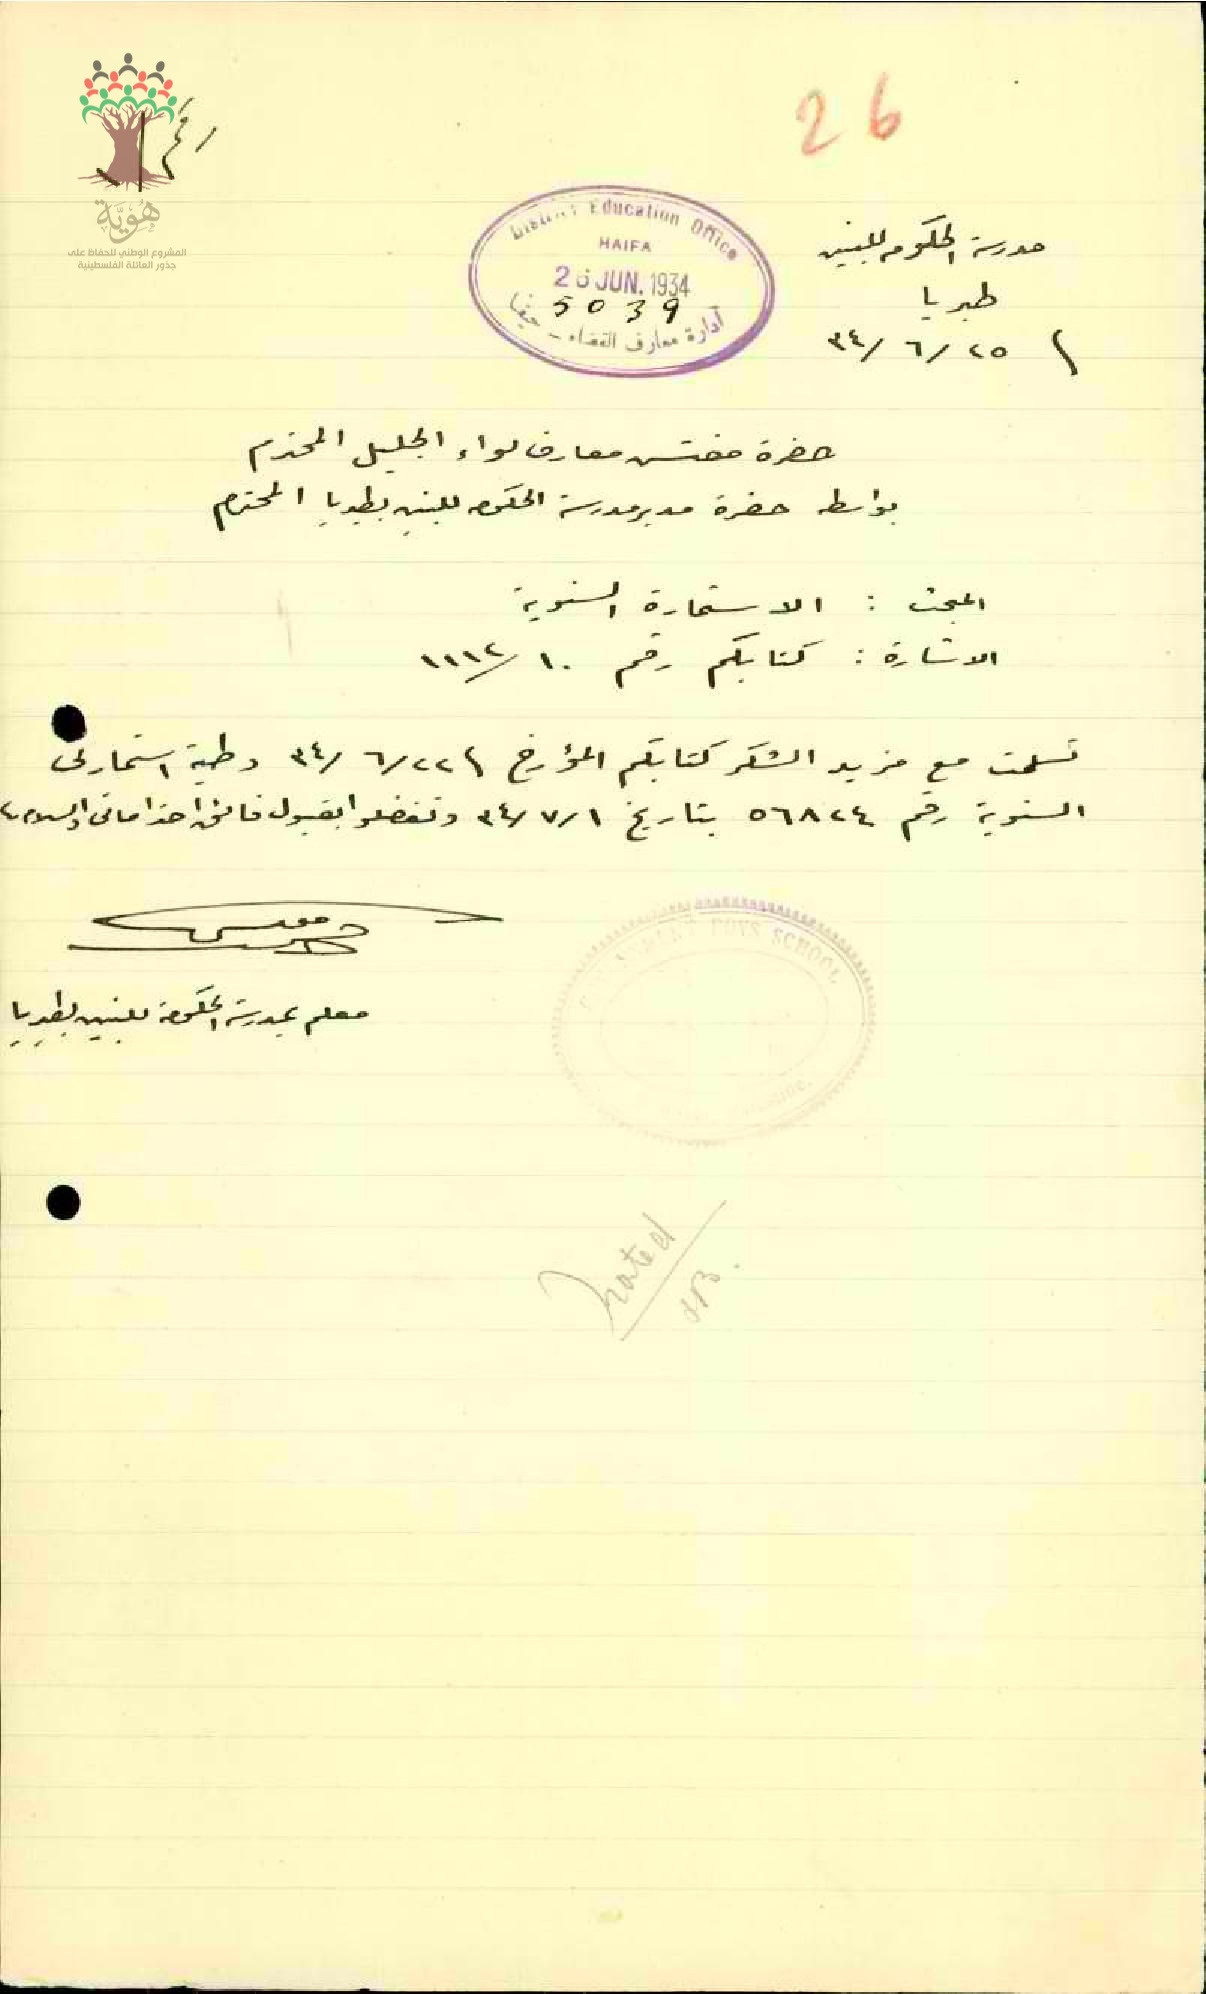 26
رقم
هُوِيَّة
المشروع الوطني للحفاظ على
جذور العائلة الفلسطينية
District Education Office
HAIFA
26 JUN. 1934
5039
أدارة معارف القضاء - حيفا
مدرسة الحكومه للبنين
طبريا
٢٥ /٦ /٣٤
حضرة مفتش معارف لواء الجليل المحترم
بواسطه حضرة مدير مدرسة الحكومه للبنين بطبريا المحترم
المبحث : الاستمارة السنوية
الاشارة : كتابكم رقم ١٠/ ١١١٢
تسلمت مع مزيد الشكر كتابكم المؤرخ ٢٢/ ٦/ ٣٤ وطيه استمارتي
السنوية رقم ٥٦٨٢٤ بتاريخ ١/ ٧/ ٣٤ وتفضلوا بقبول فائق احتراماتي والسلام
BOYS SCHOOL
معلم بمدرسة الحكومة للبنين بطبريا
Noted